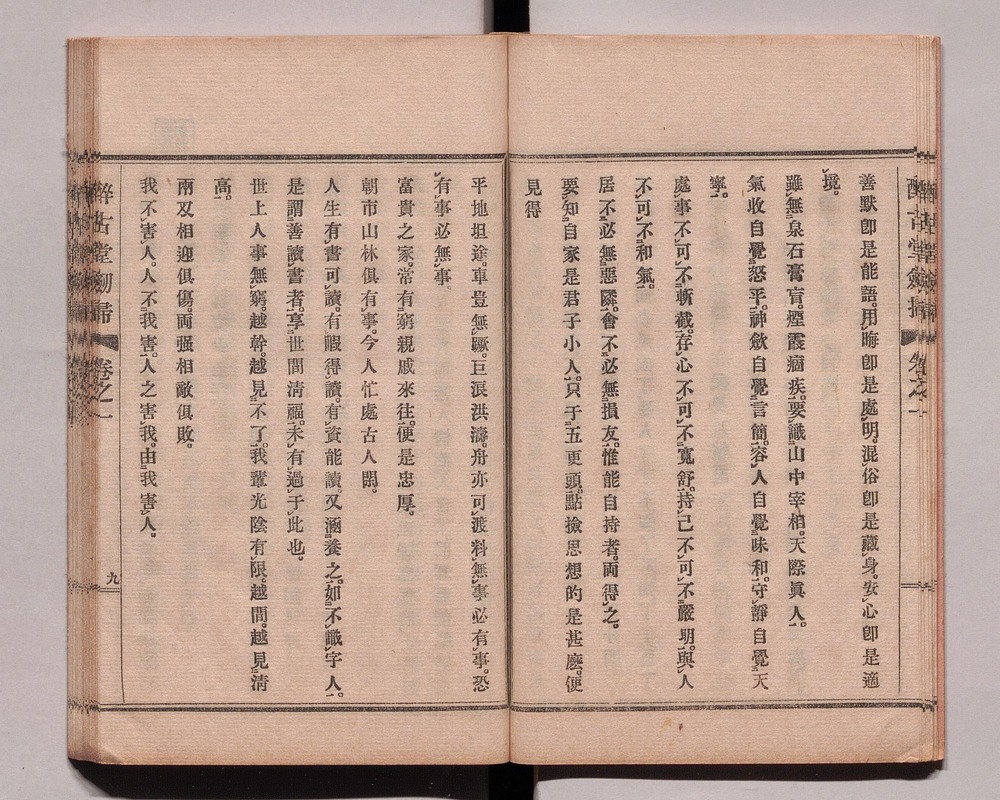 善默卽是能語。用晦卽是處明。混俗卽是藏身。安心卽是適
境。
雖無泉石膏肓。煙霞痼疾。要識山中宰相。天際眞人。
氣收自覺怒平。神歛自覺言簡。容人自覺味和。守靜自覺天
寧。
處事不可不斬截。存心不可不寬舒。持己不可不嚴明。與人
不可不和氣。
居不必無惡隣。會不必無損友。惟能自持者。兩得之。
要知自家是君子小人。只于五更頭。點撿思想的是甚麼。便
見得
平地坦途。車豈無蹶。巨浪洪濤。舟亦可渡。料無事必有事。恐
有事必無事。
富貴之家。常有窮親戚來往。便是忠厚。
朝市山林俱有事。今人忙處古人閒。
人生有書可讀。有暇得讀。有資能讀。又涵養之。如不識字人。
是謂善讀書者。享世間淸福。未有過于此也。
世上人事無窮。越幹。越見不了。我輩光陰有限。越間。越見淸
高。
兩刄相迎俱傷。兩强相敵俱敗。
我不害人。人不我害。人之害我。由我害人。
醉古堂劒掃
卷之一
九